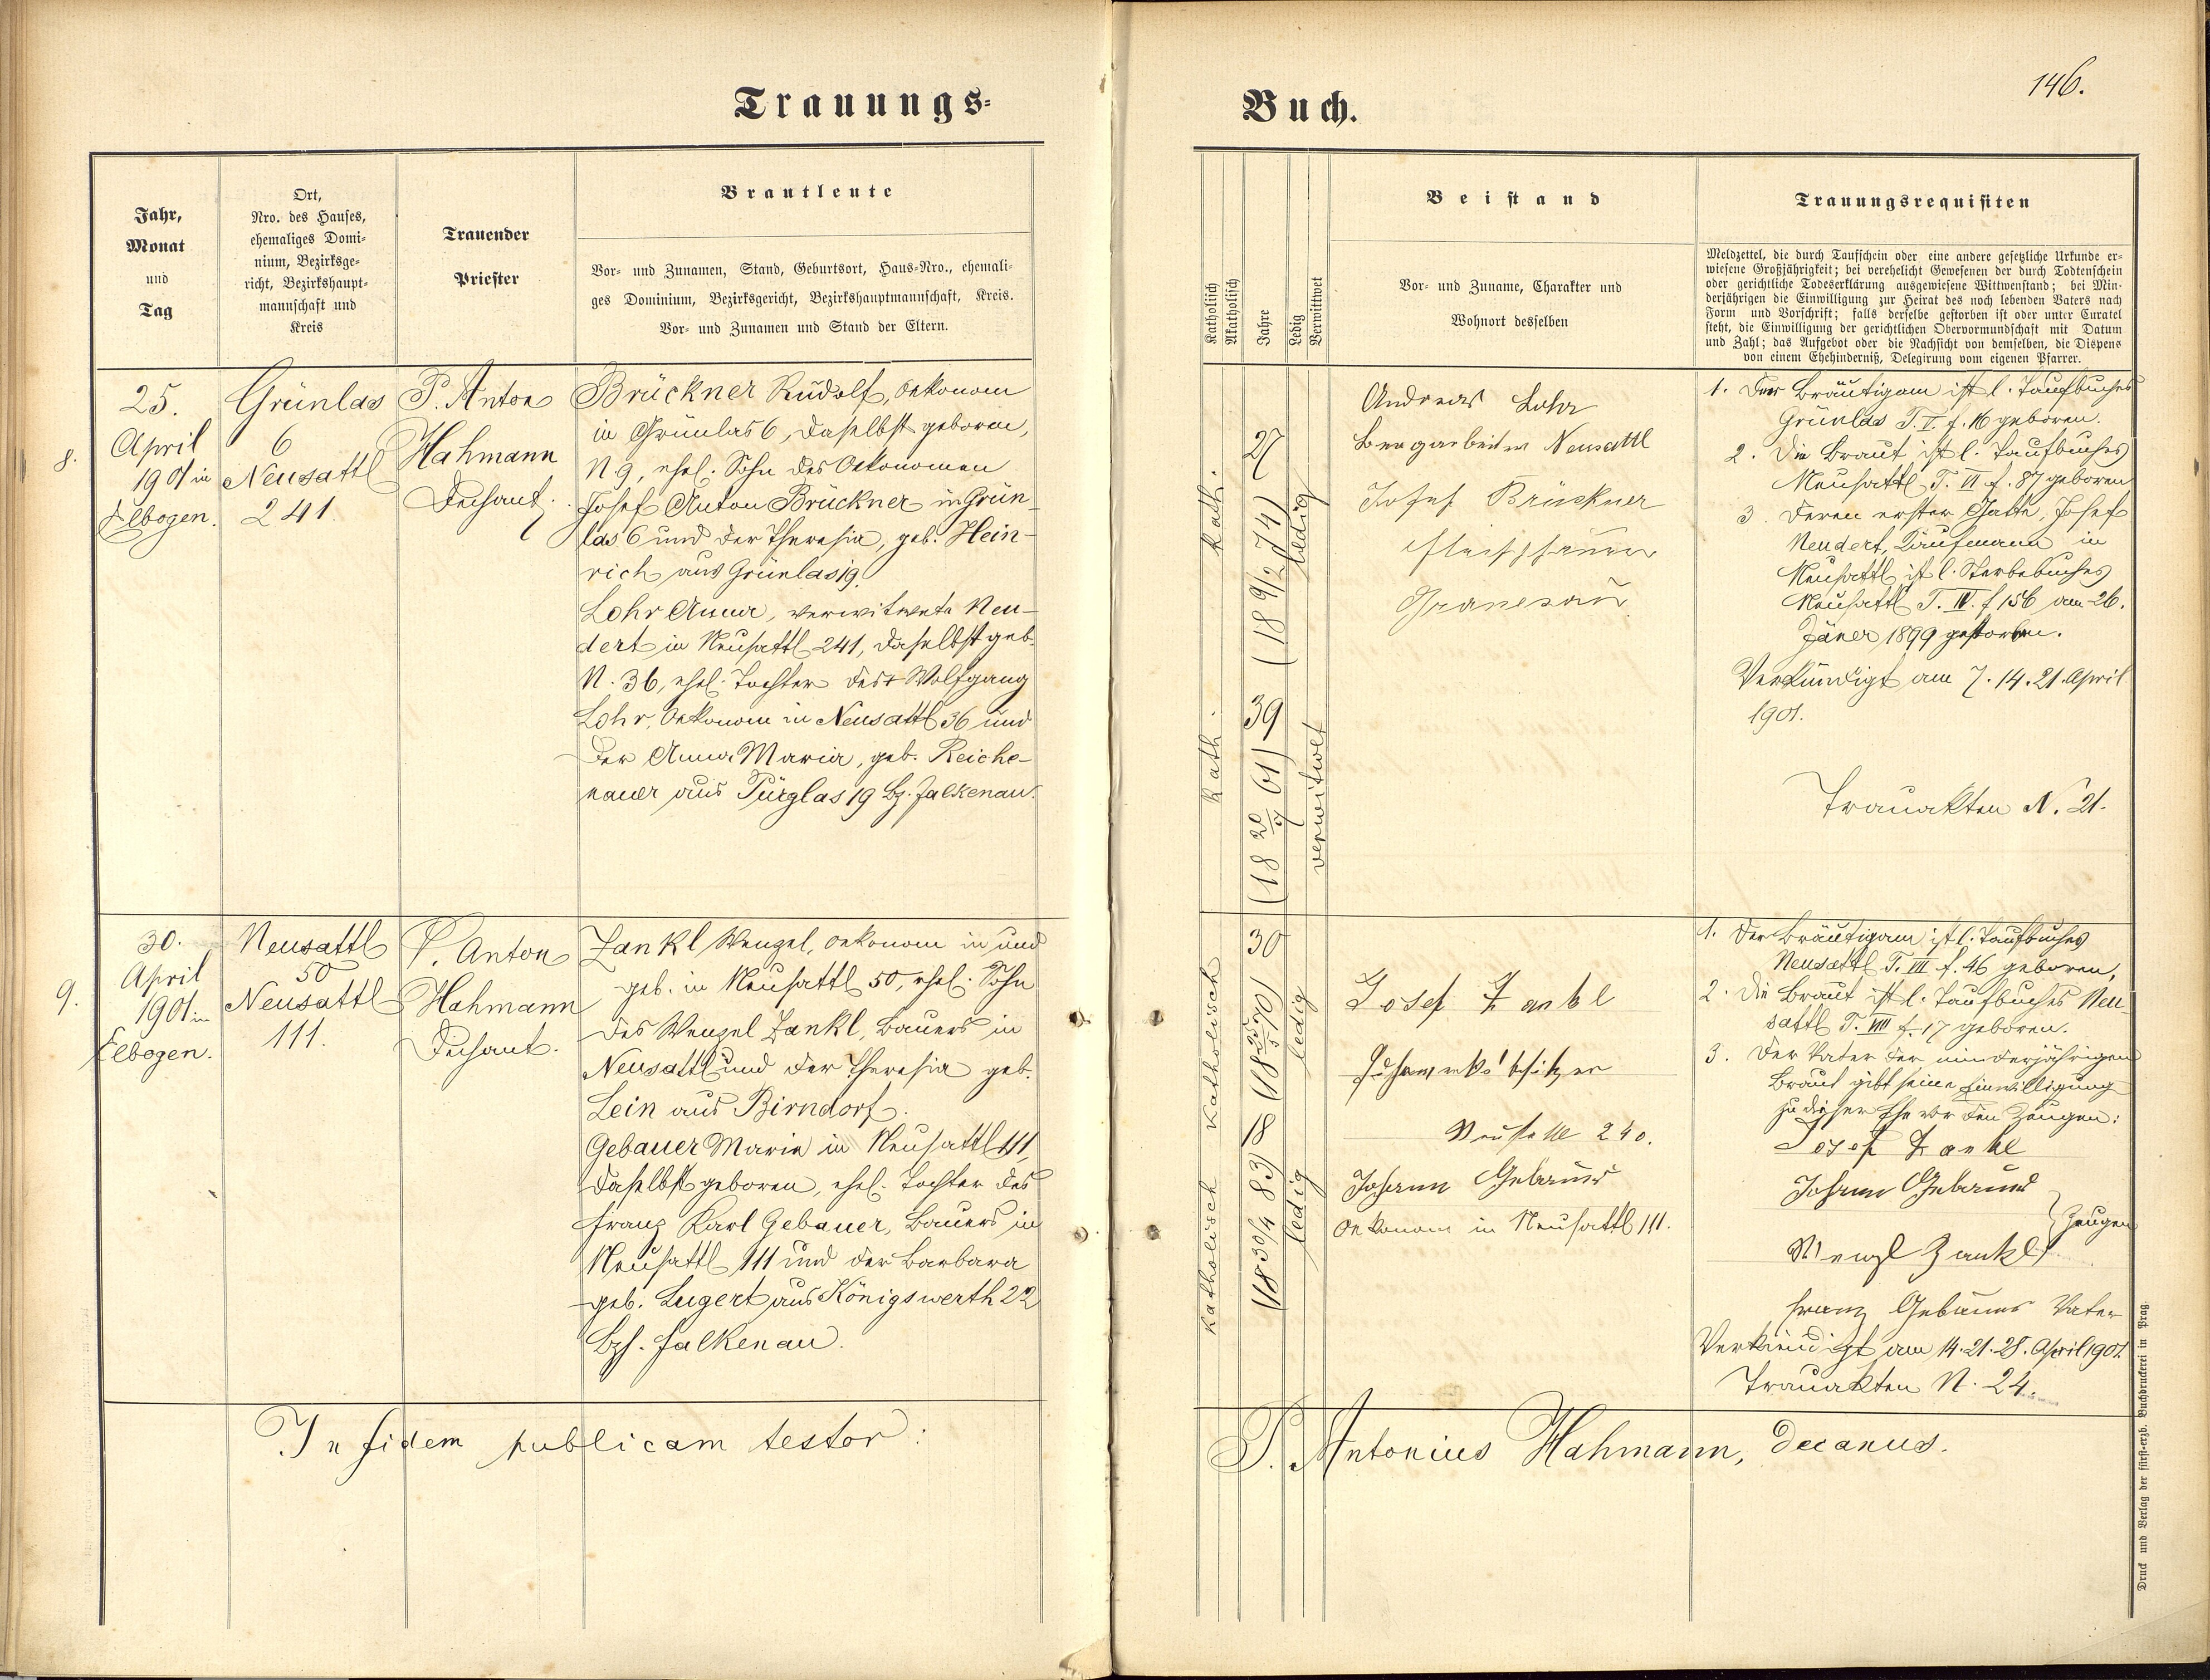 Trauungs-
Buch.
146.
Jahr,
Monat
und
Tag
Ort,
Nro. des Hauses,
ehemaliges Domi-
nium, Bezirksge-
richt, Bezirkshaupt-
mannschaft und
Kreis
Trauender
Priester
Brautleute
Vor- und Zunamen, Stand, Geburtsort, Haus-Nro., ehemali-
ges Dominium, Bezirksgericht, Bezirkshauptmannschaft, Kreis.
Vor- und Zunamen und Stand der Eltern.
Katholisch
Akatholisch
Jahre
Ledig
Verwittwet
Beistand
Vor- und Zuname, Charakter und
Wohnort desselben
Trauungsrequisiten
Meldzettel, die durch Taufschein oder eine andere gesetzliche Urkunde er-
wiesene Großjährigkeit; bei verehelicht Gewesenen der durch Todtenschein
oder gerichtliche Todeserklärung ausgewiesene Wittwenstand; bei Min-
derjährigen die Einwilligung zur Heirat des noch lebenden Vaters nach
Form und Vorschrift; falls derselbe gestorben ist oder unter Curatel
steht, die Einwilligung der gerichtlichen Obervormundschaft mit Datum
und Zahl; das Aufgebot oder die Nachsicht von demselben, die Dispens
von einem Ehehinderniß, Delegirung vom eigenen Pfarrer.
8.
25.
April
1901 in
Elbogen.
Grünlas
6
Neusattl
241.
P. Anton
Hahmann
Dechant.
Brückner Rudolf, Oekonom
in Grünlas 6, daselbst geboren,
N 9, ehel. Sohn des Oekonomen
Josef Anton Brückner in Grün-
las 6 und der Theresia, geb. Hein-
rich aus Grünlas 19.
Lohr Anna, verwitwete Neu-
dert in Neusattl 241, daselbst geb.
N. 36, ehel. Tochter des † Wolfgang
Lohr, Oekonom in Neusattl 36 und
der Anna Maria, geb. Reiche-
nauer aus Pürglas 19 Bz. Falkenau.
kath.
27
(18 9/2 74)
ledig
kath.
39
(18 20/9 61)
verwitwet
Andreas Lohr
Bergarbeiter Neusattl
Josef Brückner
Fleischhauer
Granesau
1. Der Bräutigam ist l. Taufbuches
Grünlas T. I. f. 16 geboren.
2. Die Braut ist l. Taufbuches
Neusattl T. VI f. 87 geboren
3. Deren erster Gatte, Josef
Neudert, Kaufmann in
Neusattl ist l. Sterbebuches
Neusattl T. IV. f 156 am 26.
Jäner 1899 gestorben.
Verkündigt am 7. 14. 21. April
1901.
Trauakten N. 21.
9.
30.
April
1901 in
Elbogen.
Neusattl
50
Neusattl
111.
P. Anton
Hahmann
Dechant.
Zankl Wenzel, Oekonom in und
geb. in Neusattl 50, ehel. Sohn
des Wenzel Zankl, Bauers in
Neusattl und der Theresia geb.
Lein aus Birndorf.
Gebauer Marie in Neusattl 111,
daselbst geboren, ehel. Tochter des
Franz Karl Gebauer, Bauers in
Neusattl 111 und der Barbara
geb. Lugert aus Königswerth 22
Bzh. Falkenau.
katholisch
30
(18 25/5 70)
ledig
katholisch
18
(18 30/4 83)
ledig
Josef Zankl
Neusattl 240.
Johann Gebauer
Oekonom in Neusattl 111.
1. Der Bräutigam ist l. Taufbuches
Neusattl T. VII f. 46 geboren,
2. Die Braut ist l. Taufbuches Neu-
sattl T. VIII f. 17 geboren.
3. Der Vater der minderjährigen
Braut gibt seine Einwilligung
zu dieser Ehe vor den Zeugen:
Josef Zankl
Johann Gebauer
Zeugen
Wenzl Zankl
Franz Gebauer Vater
Verkündigt am 14. 21. 28. April 1901.
Trauakten N. 24.
In fidem publicam testor:
P. Antonius Hahmann, Decanus.
Druck und Verlag der fürst-erzb. Buchdruckerei in Prag.